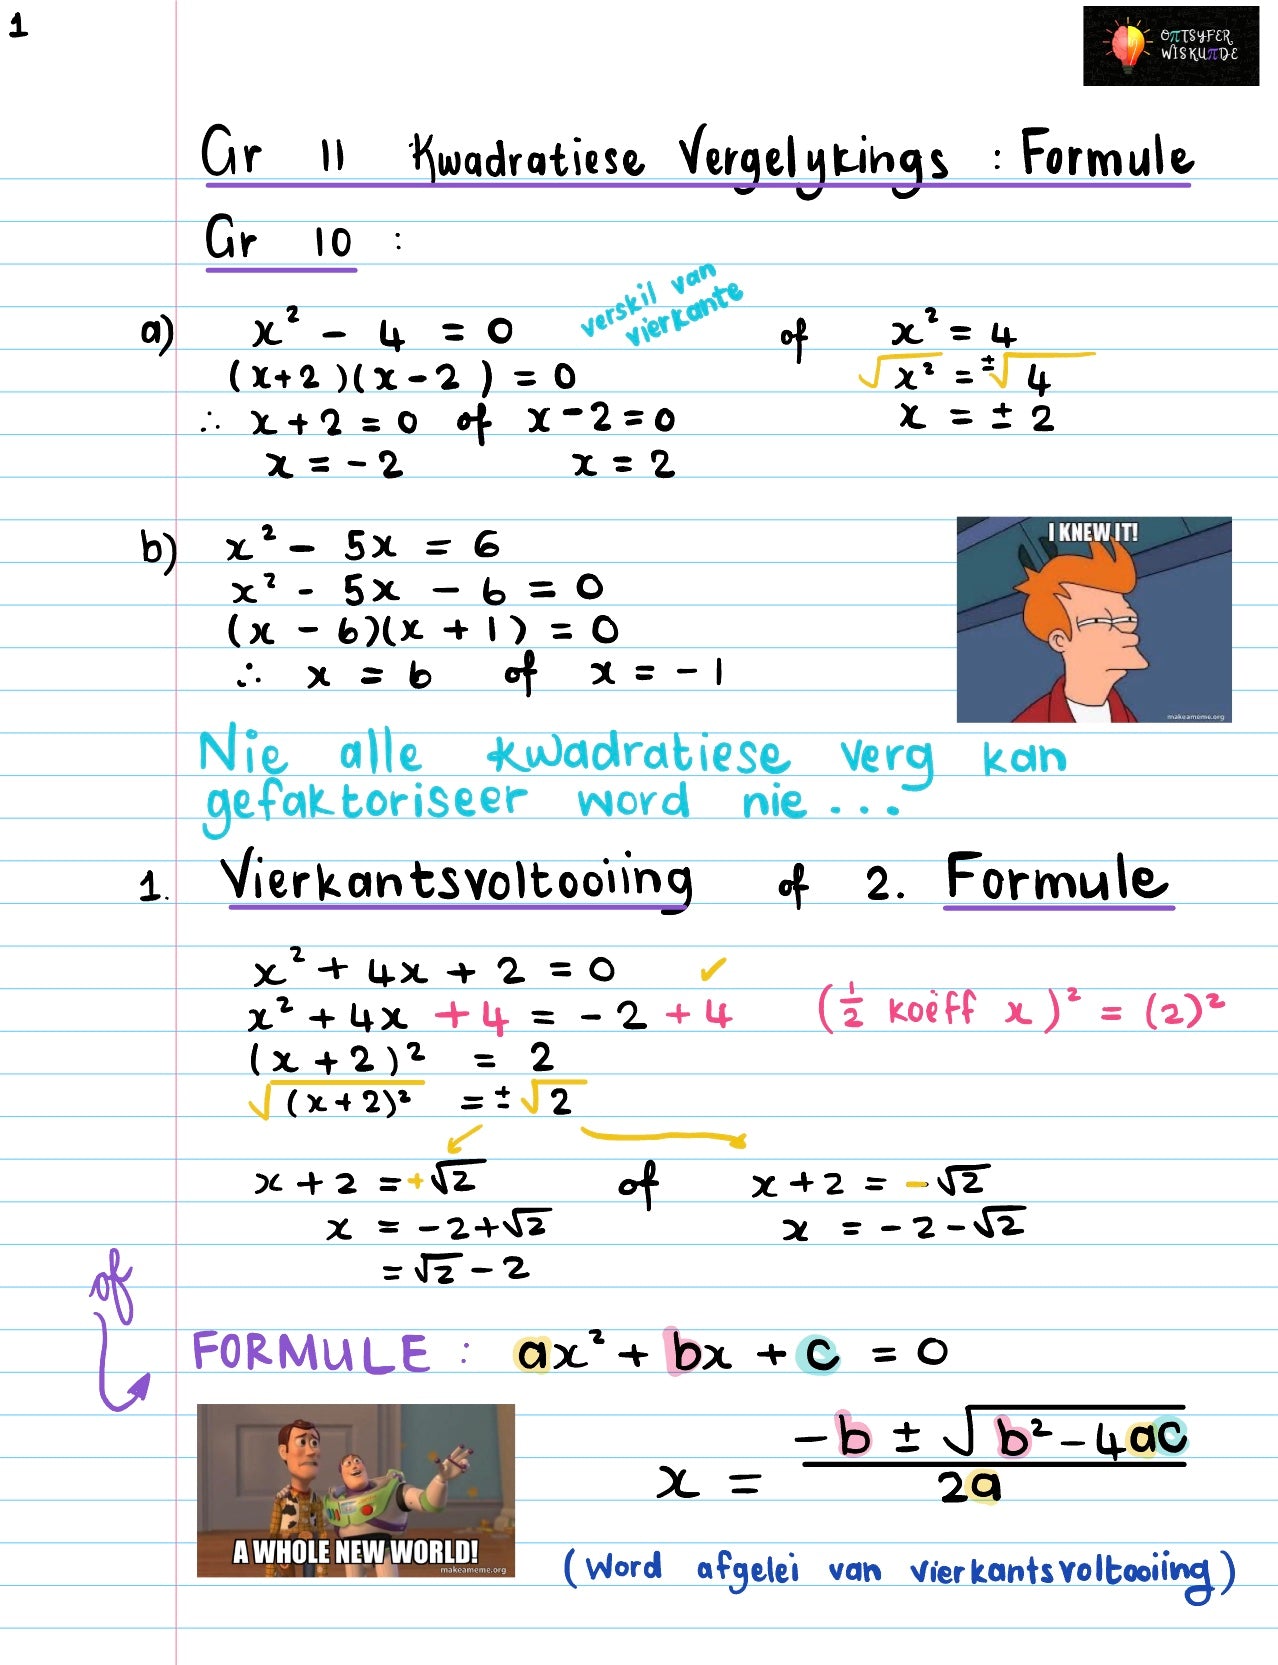 1
OπTSYFER
WISKUπDE
Gr 11 Kwadratiese Vergelykings : Formule
Gr 10 :
a) x² - 4 = 0 verskil van vierkante of x² = 4
(x+2)(x-2) = 0 √x² = ±√4
∴ x + 2 = 0 of x - 2 = 0 x = ± 2
x = -2 x = 2
b) x² - 5x = 6
x² - 5x - 6 = 0
(x - 6)(x + 1) = 0
∴ x = 6 of x = -1
I KNEW IT!
makeameme.org
Nie alle kwadratiese verg kan
gefaktoriseer word nie ...
1. Vierkantsvoltooiing of 2. Formule
x² + 4x + 2 = 0 ✓
x² + 4x + 4 = -2 + 4 (½ koëff x)² = (2)²
(x + 2)² = 2
√(x+2)² = ±√2
x + 2 = +√2 of x + 2 = -√2
x = -2+√2 x = -2-√2
= √2 - 2
of
FORMULE : ax² + bx + c = 0
x = (-b ± √(b² - 4ac)) / 2a
A WHOLE NEW WORLD!
makeameme.org
(Word afgelei van vierkantsvoltooiing)